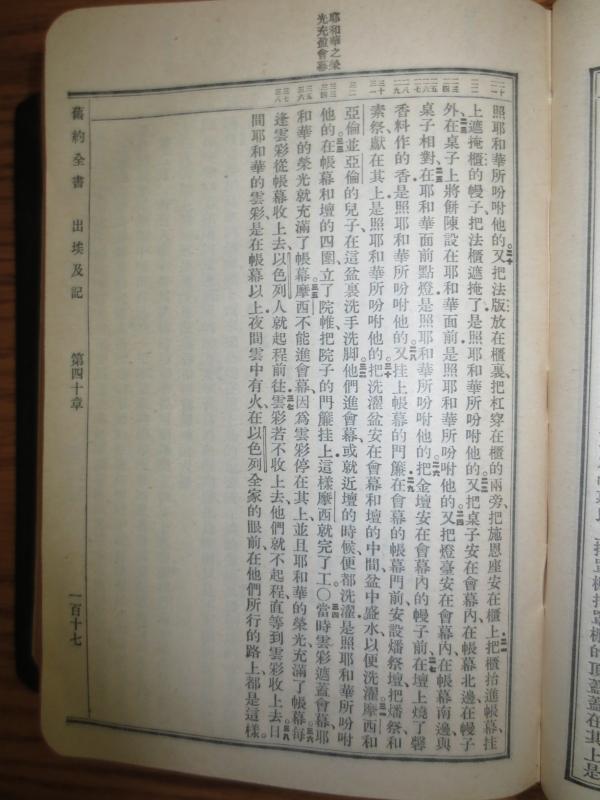 耶和華之榮
光充盈會幕
照耶和華所吩咐他的二十又把法版放在櫃裏把杠穿在櫃的兩旁把施恩座安在櫃上二一把櫃抬進帳幕挂
上遮掩櫃的幔子把法櫃遮掩了是照耶和華所吩咐他的二二又把桌子安在會幕內在帳幕北邊在幔子
外二三在桌子上將餅陳設在耶和華面前是照耶和華所吩咐他的二四又把燈臺安在會幕內在帳幕南邊與
桌子相對二五在耶和華面前點燈是照耶和華所吩咐他的二六把金壇安在會幕內的幔子前二七在壇上燒了馨
香料作的香是照耶和華所吩咐他的二八又挂上帳幕的門簾二九在會幕的帳幕門前安設燔祭壇把燔祭和
素祭獻在其上是照耶和華所吩咐他的三十把洗濯盆安在會幕和壇的中間盆中盛水以便洗濯三一摩西和
亞倫並亞倫的兒子在這盆裏洗手洗脚三二他們進會幕或就近壇的時候便都洗濯是照耶和華所吩咐
他的三三在帳幕和壇的四圍立了院帷把院子的門簾挂上這樣摩西就完了工〇三四當時雲彩遮蓋會幕耶
和華的榮光就充滿了帳幕三五摩西不能進會幕因爲雲彩停在其上並且耶和華的榮光充滿了帳幕三六每
逢雲彩從帳幕收上去以色列人就起程前往三七雲彩若不收上去他們就不起程直等到雲彩收上去三八日
間耶和華的雲彩是在帳幕以上夜間雲中有火在以色列全家的眼前在他們所行的路上都是這樣。
舊約全書 出埃及記 第四十章 一百十七